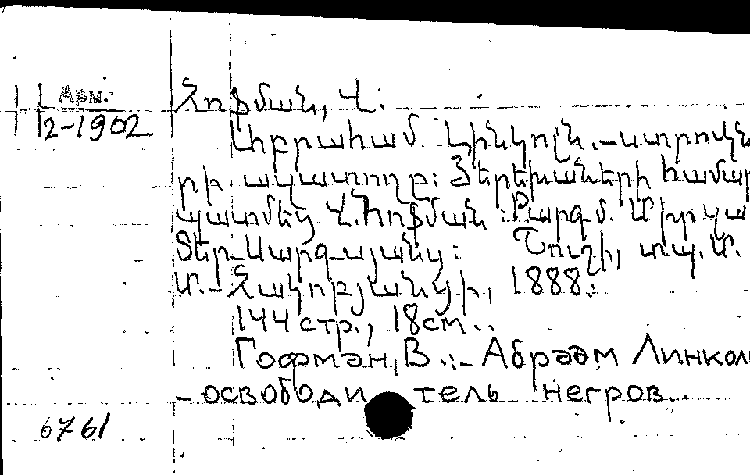 Арм.
2-1902
Հոֆման, Վ.
Աբրահամ Լինկոլն.-ստրուկնե
րի ազատողը: Երեխաների համար
պատմեց Վ. Հոֆման: Թարգմ. Միրկա
Տեր-Սարգսյանց: Շուշի, տպ. Մ.
Մ.-Հակոբյանցի, 1888.
144 стр., 18 см..
Гофман, В.:- Абраам Линкол
-освободитель негров..
6761